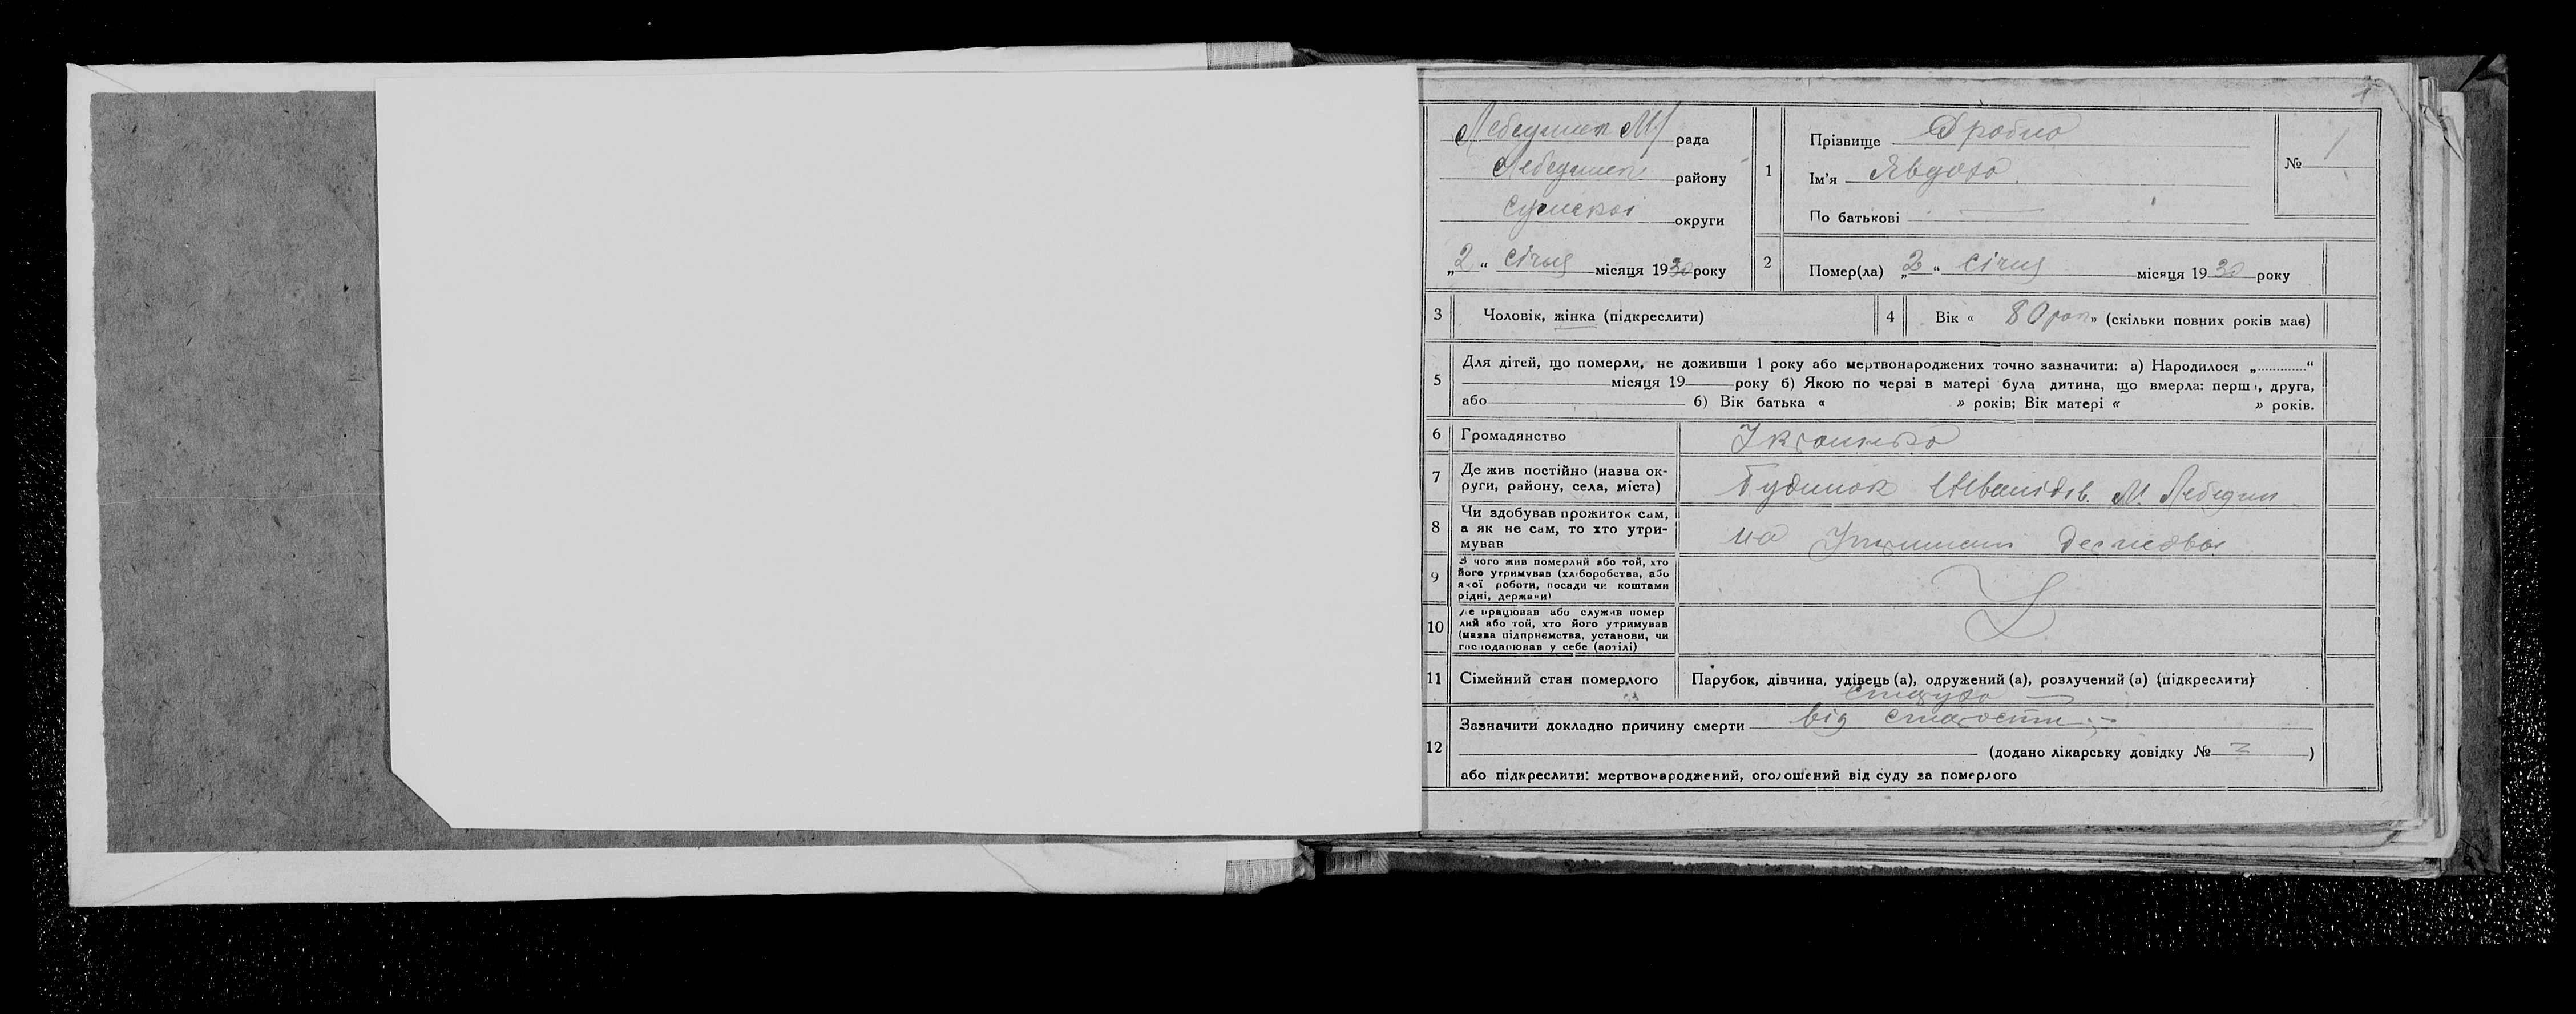 1
Лебединск М/ рада
Лебединск району
Сумської округи
„2“ січня місяця 1930 року
1
Прізвище Дробно
Ім'я Явдоха
По батькові —
№ 1
2
Помер(ла) „2“ січня місяця 1930 року
3
Чоловік, жінка (підкреслити)
4
Вік « 80 рок » (скільки повних років мав)
5
Для дітей, що померли, не доживши 1 року або мертвонароджених точно зазначити: а) Народилося „ “
місяця 19 року б) Якою по черзі в матері була дитина, що вмерла: перша, друга,
або б) Вік батька « » років; Вік матері « » років.
6
Громадянство
Українка
7
Де жив постійно (назва ок-
руги, району, села, міста)
Будинок Інвалідів. М. Лебедин
8
Чи здобував прожиток сам,
а як не сам, то хто утри-
мував
на Утриманні Держави
9
З чого жив померлий або той, хто
його утримував (хліборобства, або
якої роботи, посади чи коштами
рідні, держави)
10
Де працював або служив помер
лий або той, хто його утримував
(назва підприємства, установи, чи
господарював у себе (артілі)
11
Сімейний стан померлого
Парубок, дівчина, удівець (а), одружений (а), розлучений (а) (підкреслити)
12
Зазначити докладно причину смерти від старости
(додано лікарську довідку № )
або підкреслити: мертвонароджений, оголошений від суду за померлого